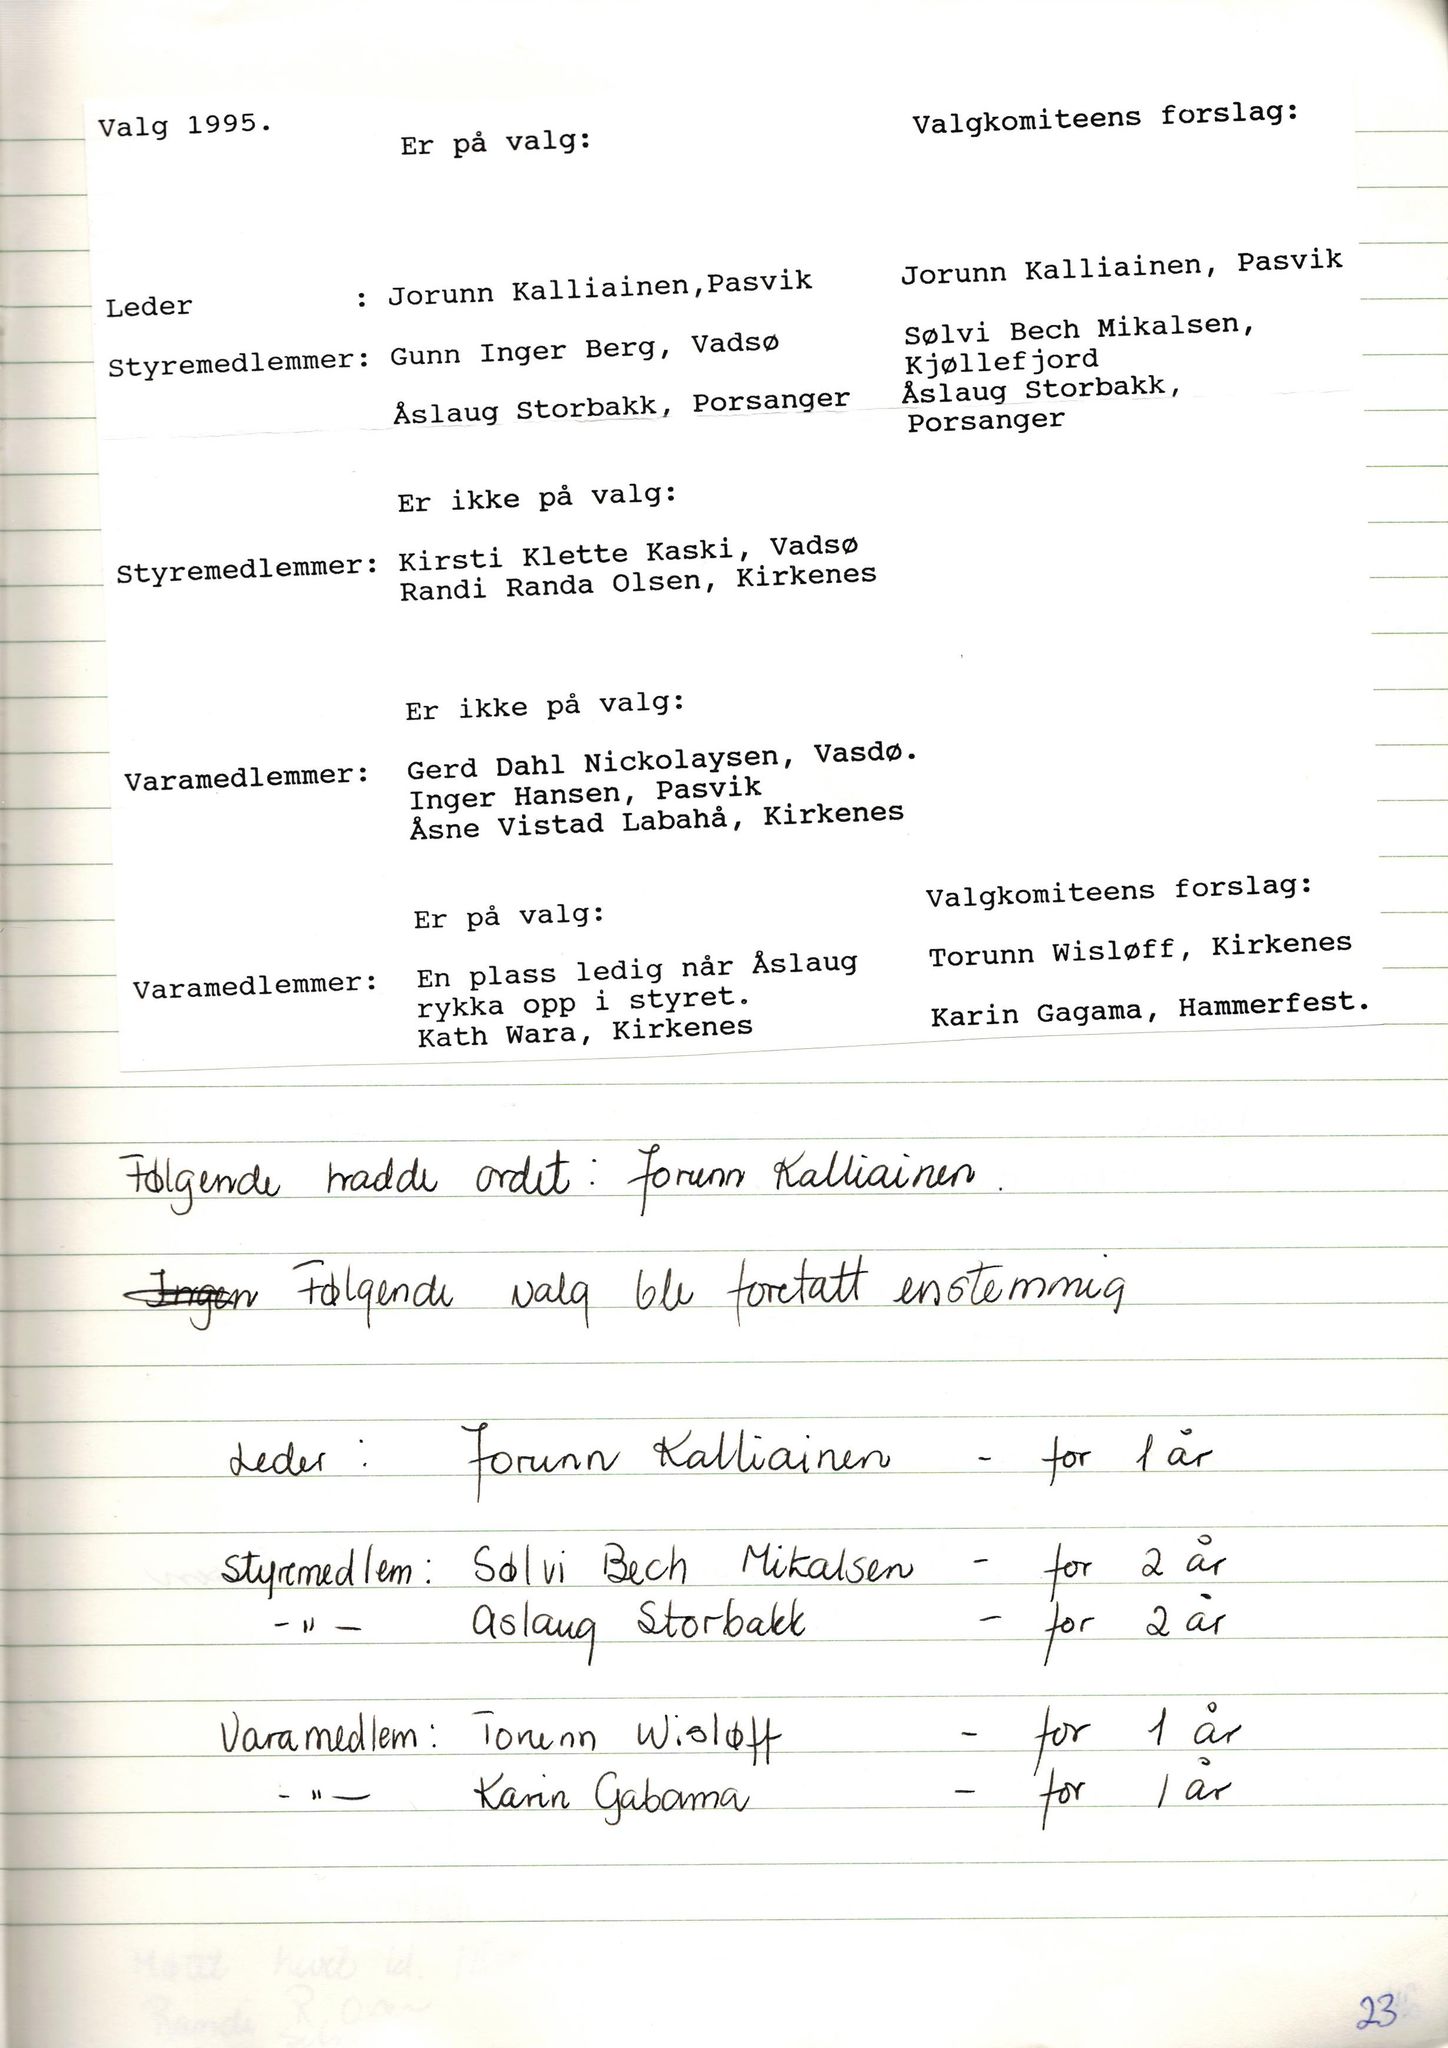 Valg 1995.
Er på valg:
Valgkomiteens forslag:
Leder : Jorunn Kalliainen,Pasvik
Jorunn Kalliainen, Pasvik
Styremedlemmer: Gunn Inger Berg, Vadsø
Sølvi Bech Mikalsen,
Kjøllefjord
Åslaug Storbakk, Porsanger
Åslaug Storbakk,
Porsanger
Er ikke på valg:
Styremedlemmer: Kirsti Klette Kaski, Vadsø
Randi Randa Olsen, Kirkenes
Er ikke på valg:
Varamedlemmer: Gerd Dahl Nickolaysen, Vasdø.
Inger Hansen, Pasvik
Åsne Vistad Labahå, Kirkenes
Er på valg:
Valgkomiteens forslag:
Varamedlemmer: En plass ledig når Åslaug
rykka opp i styret.
Kath Wara, Kirkenes
Torunn Wisløff, Kirkenes
Karin Gagama, Hammerfest.
Følgende hadde ordet: Jorunn Kalliainen.
Ingen Følgende valg ble foretatt enstemmig
Leder: Jorunn Kalliainen - for 1 år
Styremedlem: Sølvi Bech Mikalsen - for 2 år
-"- Aslaug Storbakk - for 2 år
Varamedlem: Torunn Wisløff - for 1 år
-"- Karin Gabama - for 1 år
23